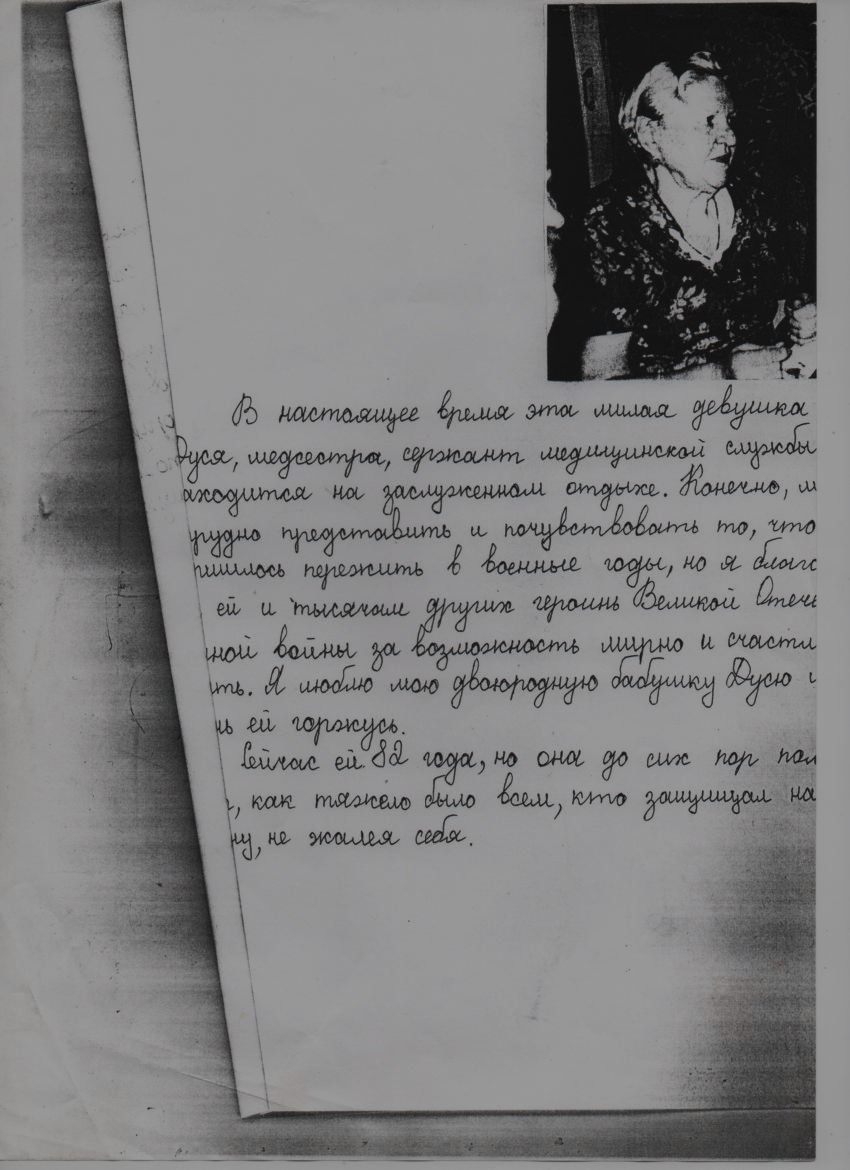 В настоящее время эта милая девушка
Дуся, медсестра, сержант медицинской службы
аходится на заслуженном отдыхе. Конечно, м
рудно представить и почувствовать то, что
ришлось пережить в военные годы, но я благо
ей и тысячам других героинь Великой Отече
ной войны за возможность мирно и счастл
ить. Я люблю мою двоюродную бабушку Дусю и
нь ей горжусь.
Сейчас ей 82 года, но она до сих пор пом
, как тяжело было всем, кто защищал на
ну, не жалея себя.